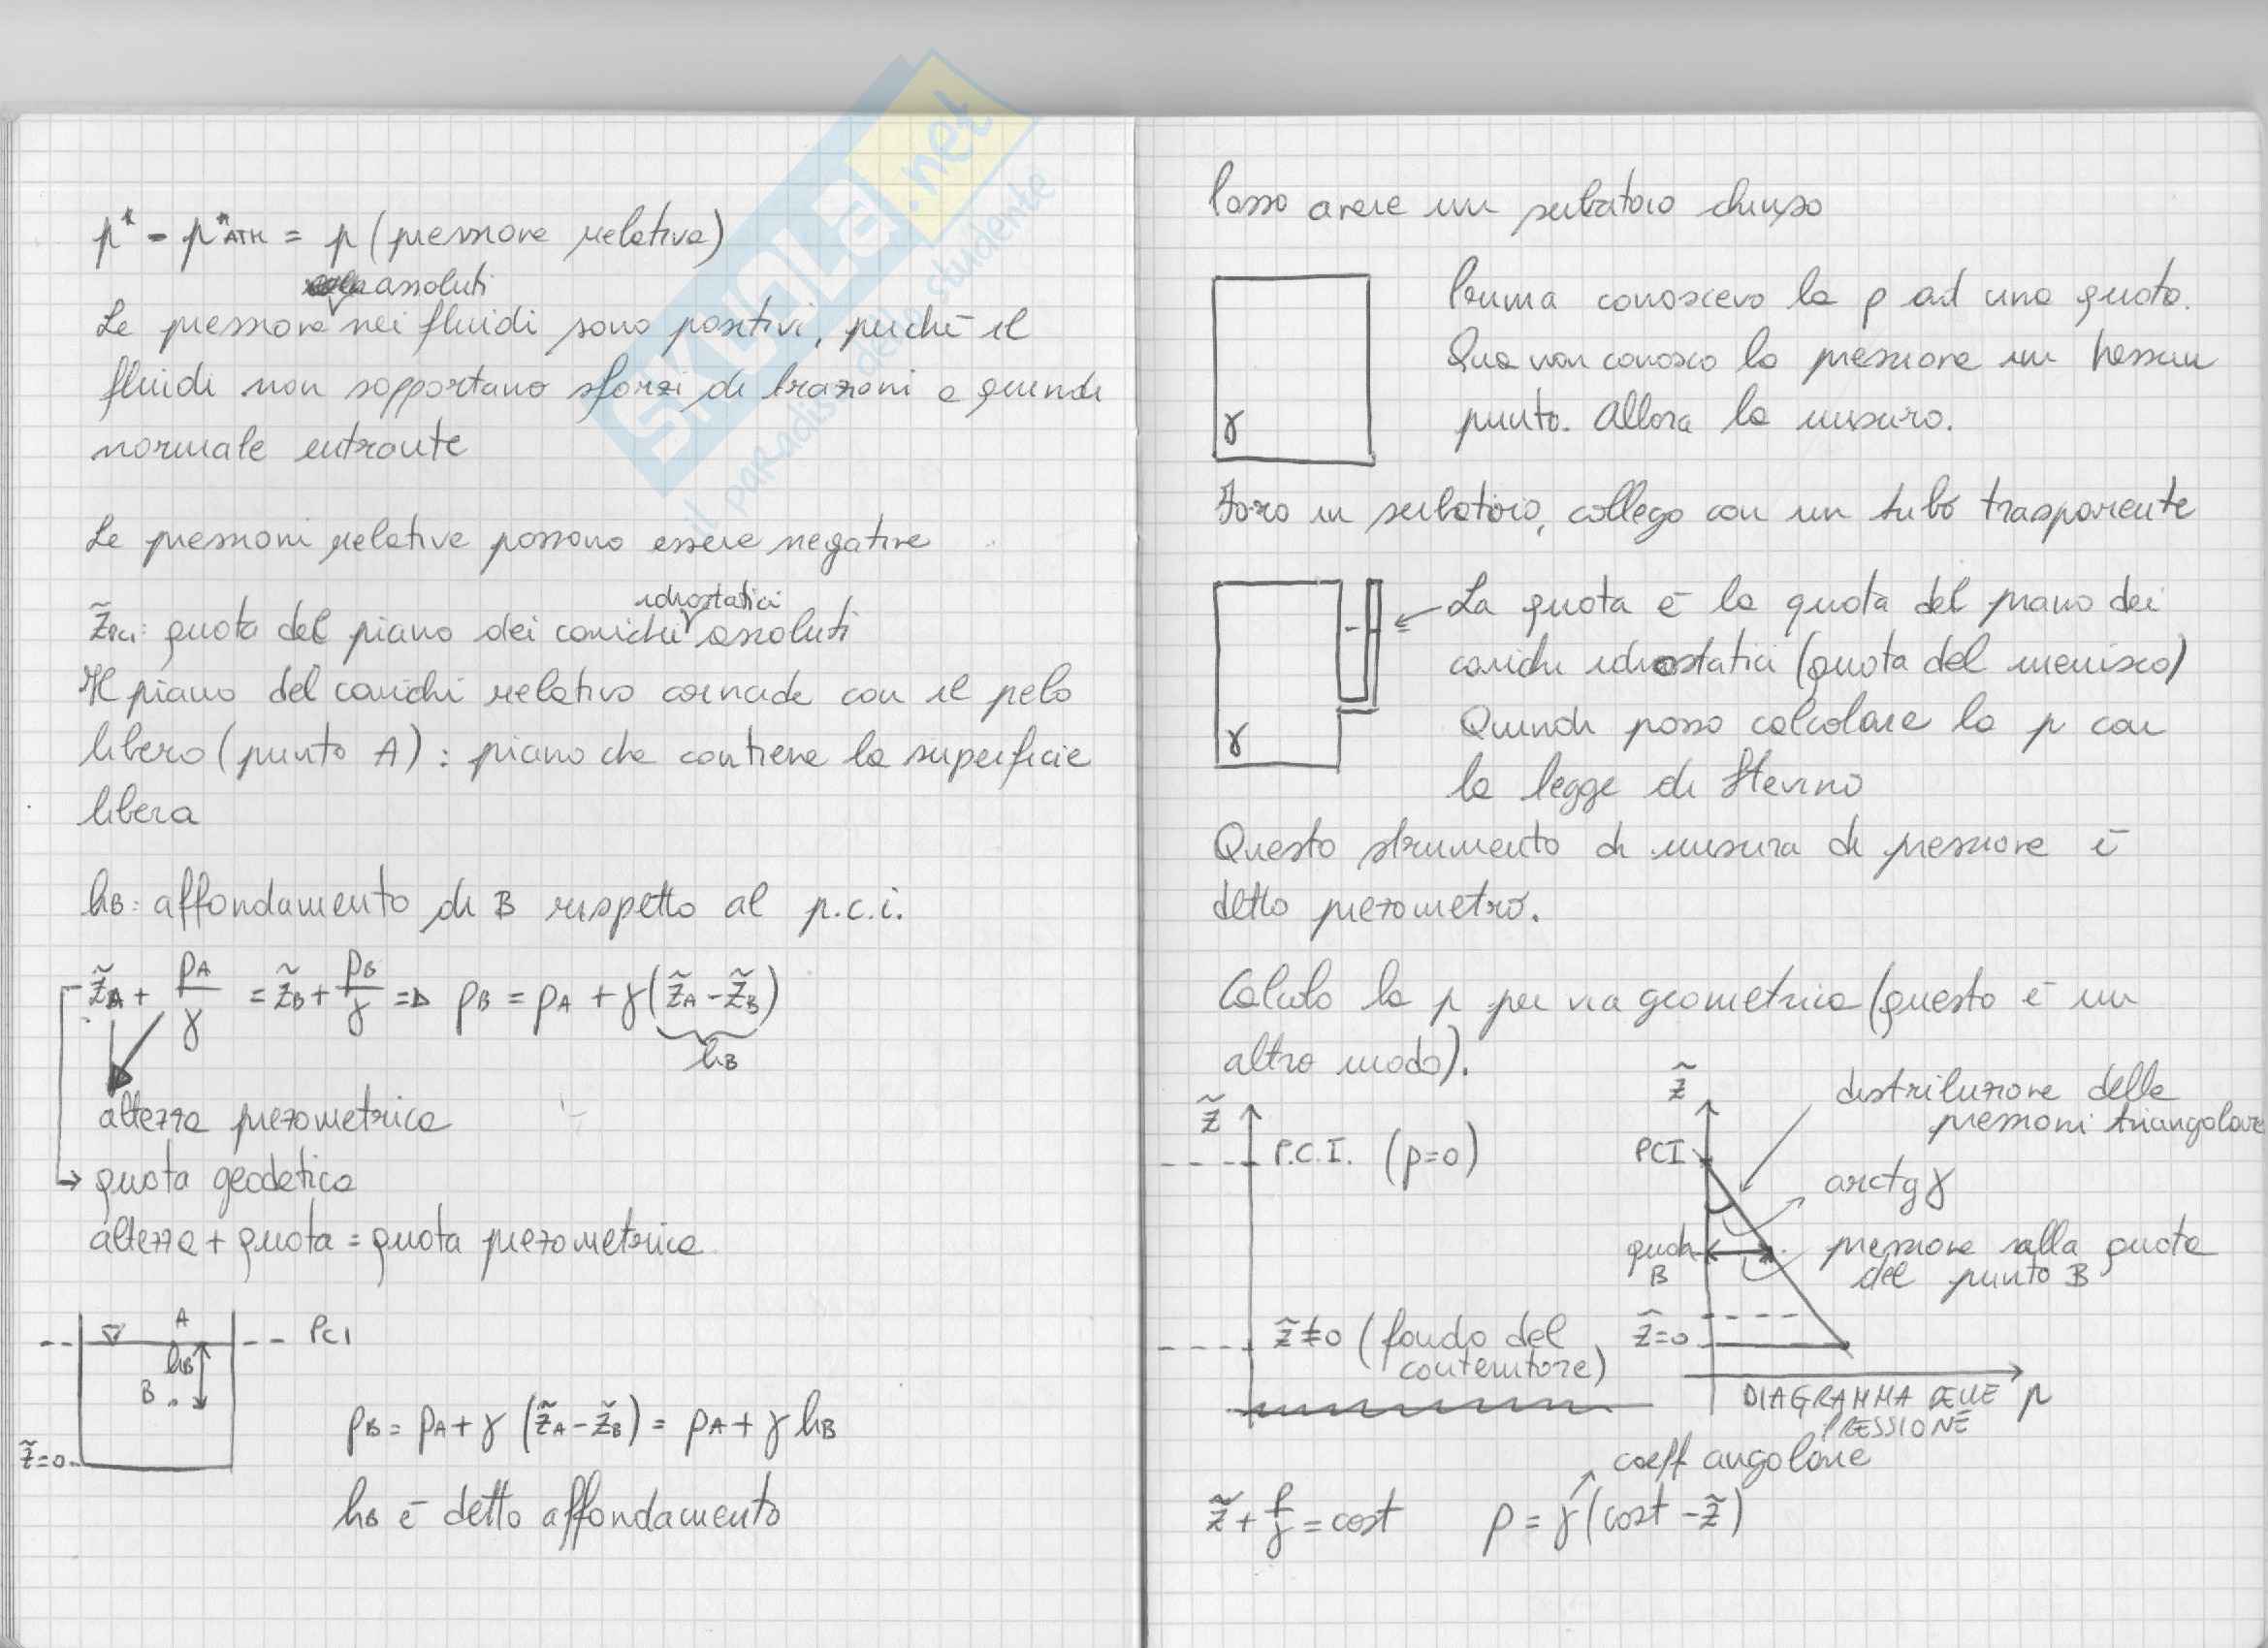 p* - p*ATM = p (pressione relativa)
assoluti
Le pressione nei fluidi sono positivi, perchè il
fluidi non sopportano sforzi di trazioni e quindi
normale entrante
Le pressioni relative possono essere negative
idrostatici
z̃PCI: quota del piano dei carichi assoluti
Il piano del carichi relativo coincide con il pelo
libero (punto A) : piano che contiene la superficie
libera
hB: affondamento di B rispetto al p.c.i.
z̃A + pA/γ = z̃B + pB/γ => pB = pA + γ(z̃A - z̃B)
hB
altezza piezometrica
quota geodetica
altezza + quota = quota piezometrica
A
PCI
hB
B
z̃=0
pB = pA + γ (z̃A - z̃B) = pA + γ hB
hB è detto affondamento
Posso avere un serbatoio chiuso
Prima conoscevo la p ad una quota.
Qua non conosco la pressione in nessun
punto. Allora la misuro.
γ
Foro un serbatoio, collego con un tubo trasparente
La quota è la quota del piano dei
carichi idrostatici (quota del menisco)
Quindi posso calcolare la p con
la legge di Stevino
γ
Questo strumento di misura di pressione è
detto piezometro.
Calcolo la p per via geometrica (questo è un
altro modo).
z̃
P.C.I. (p=0)
z̃=0 (fondo del
contenitore)
z̃
PCI
distribuzione delle
pressioni triangolare
arctg γ
quota
B
pressione sulla quota
del punto B
z̃=0
DIAGRAMMA DELLE
PRESSIONE
p
coeff angolare
z̃ + p/γ = cost p = γ(cost - z̃)
SKUOLA.net
il paradiso dello studente